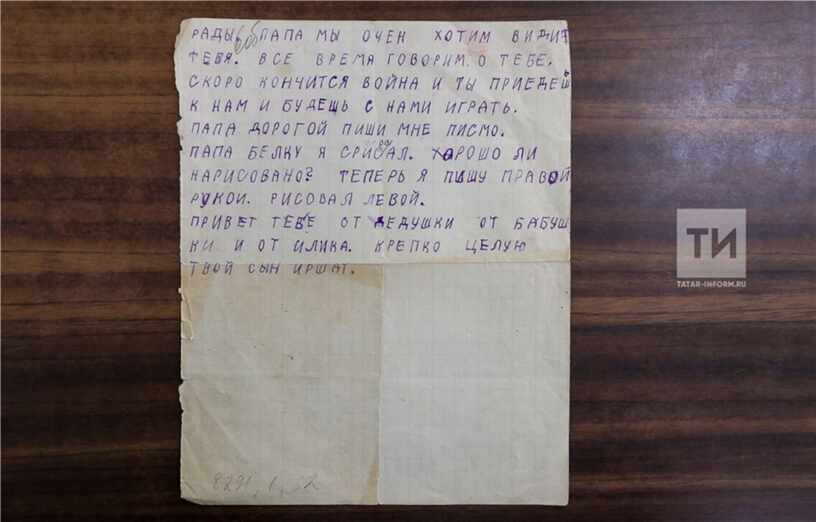 РАДЫ. ПАПА МЫ ОЧЕН ХОТИМ ВИДИТ
ТЕБЯ. ВСЕ ВРЕМА ГОВОРИМ О ТЕБЕ.
СКОРО КОНЧИТСЯ ВОЙНА И ТЫ ПРИЕДЕШЬ
К НАМ И БУДЕШЬ С НАМИ ИГРАТЬ.
ПАПА ДОРОГОЙ ПИШИ МНЕ ПИСМО.
ПАПА БЕЛКУ Я СРИСОВАЛ. ХОРОШО ЛИ
НАРИСОВАНО? ТЕПЕРЬ Я ПИШУ ПРАВОЙ
РУКОЙ. РИСОВАЛ ЛЕВОЙ.
ПРИВЕТ ТЕБЕ ОТ ДЕДУШКИ ОТ БАБУШ
КИ И ОТ ИЛИКА. КРЕПКО ЦЕЛУЮ
ТВОЙ СЫН ИРШАТ.
ТИ
TATAR-INFORM.RU